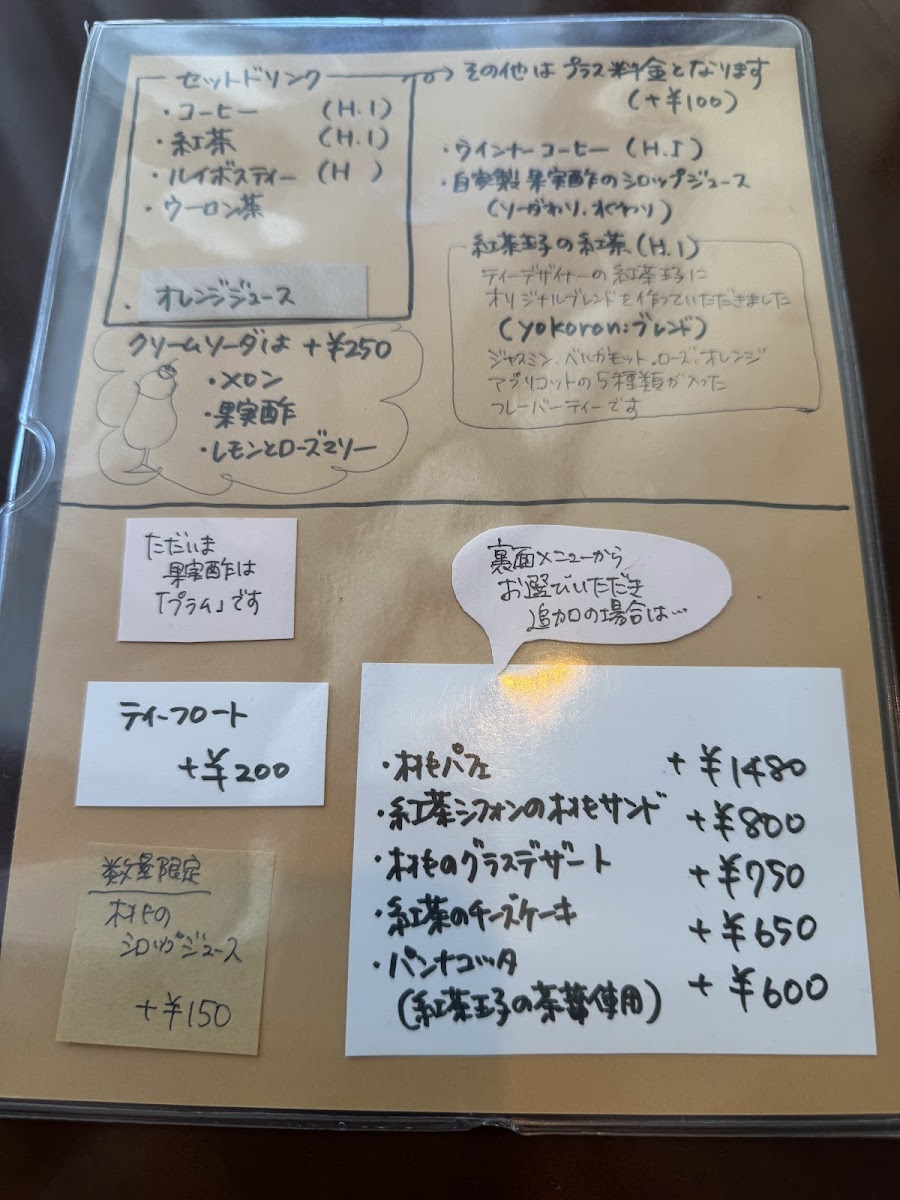 セットドリンク
・コーヒー (H.I)
・紅茶 (H.I)
・ルイボスティー (H )
・ウーロン茶
・オレンジジュース
→その他はプラス料金となります
(+¥100)
・ウインナーコーヒー (H.I)
・自家製果実酢のシロップジュース
(ソーダわり、水わり)
紅茶王子の紅茶(H.I)
ティーデザイナーの紅茶王子に
オリジナルブレンドを作っていただきました
(yokoron:ブレンド)
ジャスミン、ベルガモット、ローズ、オレンジ
アプリコットの5種類が入った
フレーバーティーです
クリームソーダは +¥250
・メロン
・果実酢
・レモンとローズマリー
ただいま
果実酢は
「プラム」です
裏面メニューから
お選びいただき
追加の場合は…
ティーフロート
+¥200
数量限定
桃の
シロップジュース
+¥150
・桃パフェ +¥1480
・紅茶シフォンの桃サンド +¥800
・桃のグラスデザート +¥750
・紅茶のチーズケーキ +¥650
・パンナコッタ +¥600
(紅茶王子の茶葉使用)